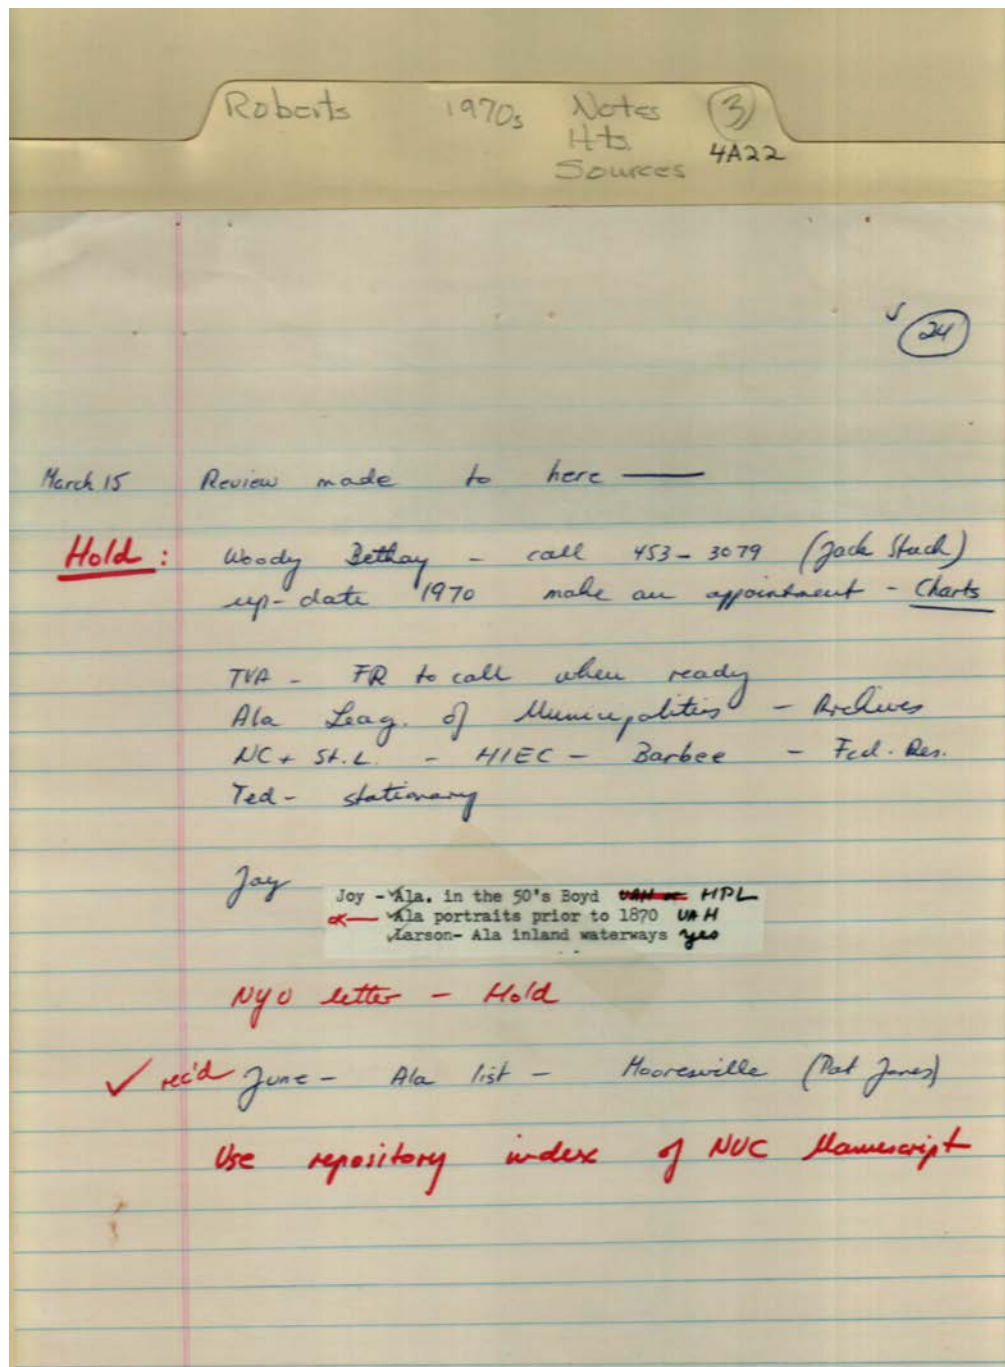 Roberts 1970s Notes 3
Hts.
Sources 4A22
24
March 15 Review made to here
Hold: Woody Bethay - call 453-3079 (Jack Stuck)
up-date 1970 make an appointment - Charts
TVA - FR to call when ready
Ala Leag. of Municipalities - Archives
NC + St.L. - HIEC - Barbee - Fed. Res.
Ted - stationary
Joy
Joy - Ala. in the 50's Boyd UAH or HPL
Ala portraits prior to 1870 UAH
Larson- Ala inland waterways yes
NYU letter - Hold
✓ rec'd June - Ala list - Mooresville (Pat Jones)
Use repository index of NUC Manuscript